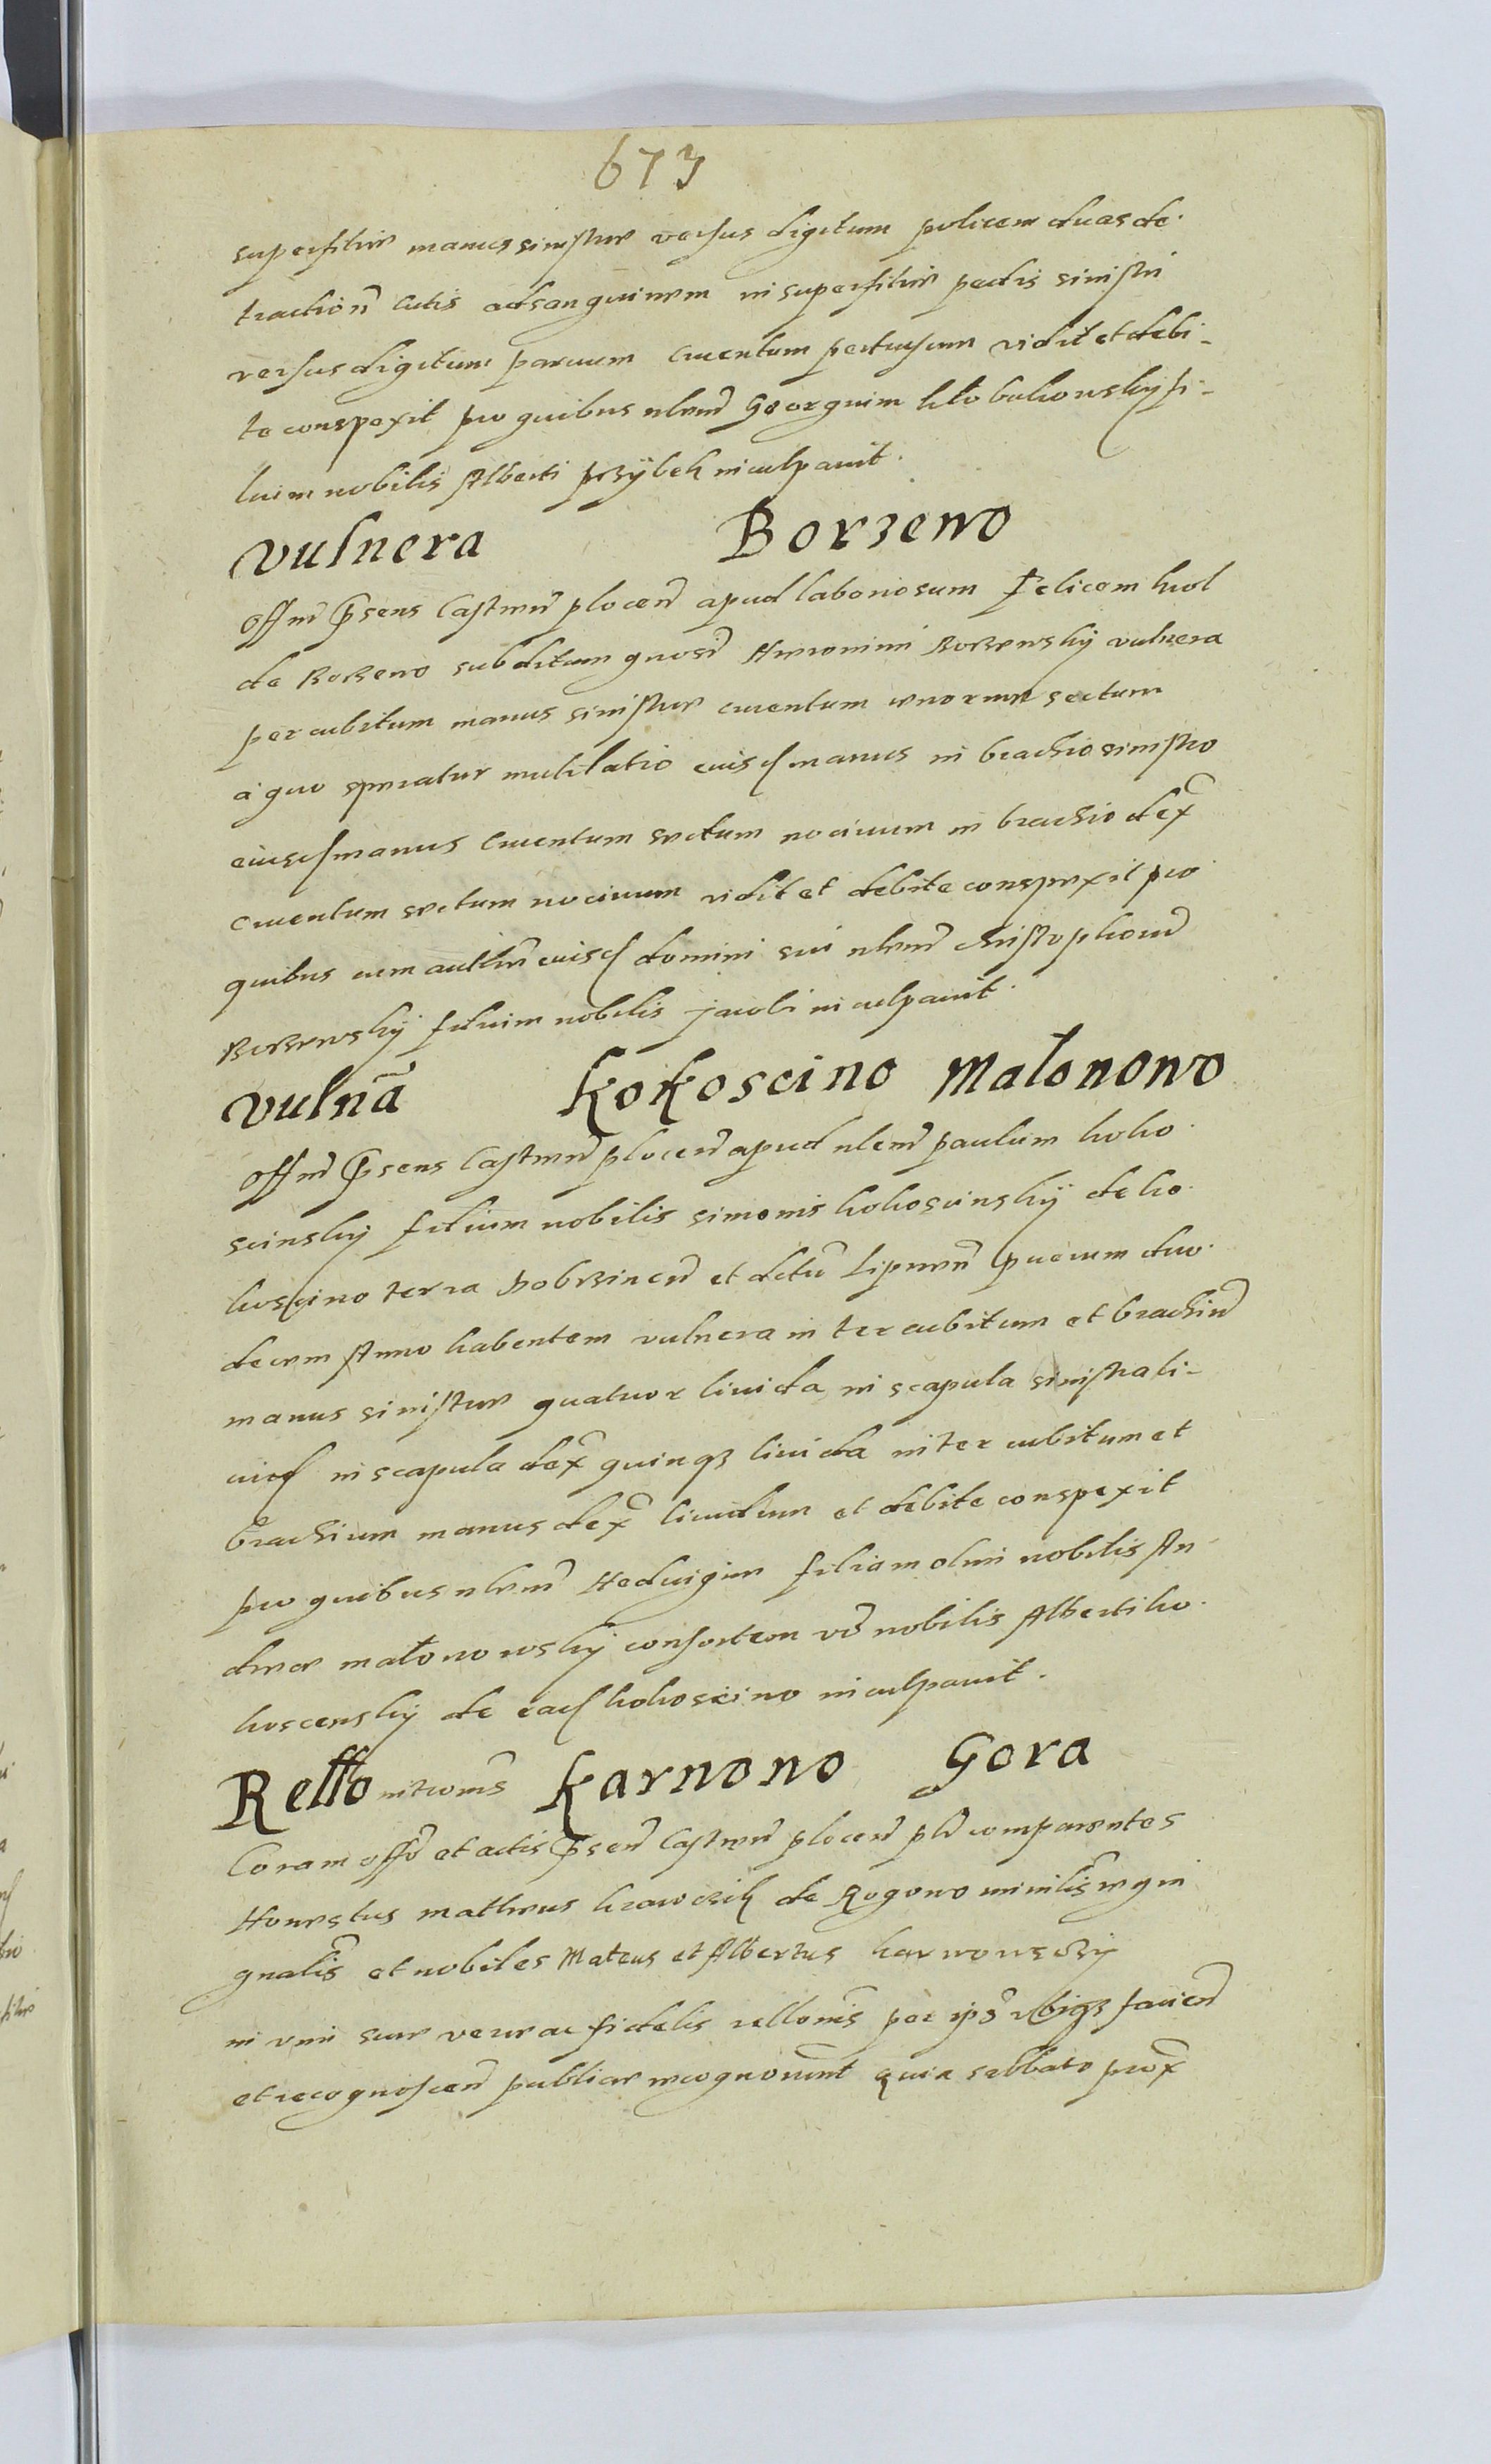 673
superfitie manus sinistre versus digitum policem duas de
traction̄ Cutis ad sanguinem in superfitie pedis sinistri
versus digitum parvum Cruentum pertusum vidit et debi-
te conspexit pro quibus nlem̄ Georgium klobukowskÿ fi-
lium nobilis Alberti przÿbek inculpavit.
Vulnera Borzewo
Offm̄ p̄sens Castren̄ plocen̄ apud laboriosum Felicem krol
de Borzewo subditum gnosi Hieronimi Borzewskÿ vulnera
per cubitum manus sinistre cruentum enorme sectum
a quo speratur mutilatio eiusd manus in brachio sinistro
eiusd manus Cruentum sectum nocivum in brachio dex̄
Cruentum sectum nocivum vidit et debite conspexit pro
quibus cum eiusd domini sui nlem̄ Christophorū
Borzewskÿ filium nobilis Jacobi inculpavit.
Vuln̄a Kokoscino Malonowo
Offm̄ p̄sens Castren̄ plocen̄ apud nlem̄ paulum koko
scinskÿ filium nobilis simonis kokoscinskÿ de ko
koscino terra Dobrzinen̄ et dctū Lipnen̄ puerum duo
decem Anno habentem vulnera inter cubitum et brachiū
manus sinistre quatuor livida in scapula sinistra li-
vid in scapula dex̄ quinqz livida inter cubitum et
brachium manus dex̄ lividum et debite conspexit
pro quibus nlem̄ Heduigim filiam olim nobilis An
dree małonowskÿ consortem vō nobilis Alberti ko
koscenskÿ de ead kokoscino inculpavit.
Rello nitionis Karwowo Gora
Coram offō et actis p̄sen̄ Castren̄ plocen̄ plr̄ comparentes
Honestus matheus krawczik de Rogowo minilis̄ regni
gnalis̄ et nobiles Mateus et Albertus karwowsczÿ
in vim sue vere ac fidelis rellonis̄ per ip̄s ubiqz facien̄
et recognoscen̄ publice recognovm̄t quia sabbato prox̄